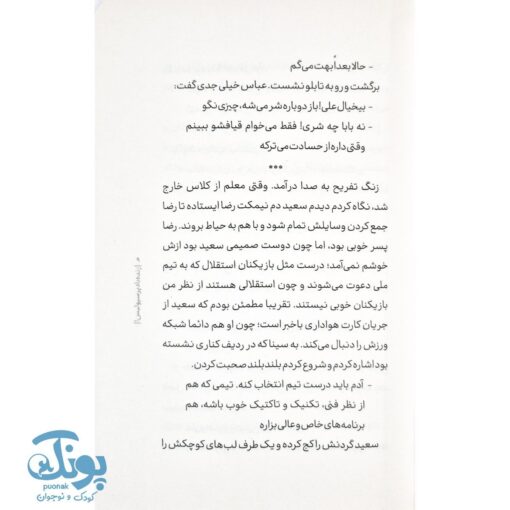 - حالا بعداً بهت می‌گم
برگشت و رو به تابلو نشست. عباس خیلی جدی گفت:
- بیخیال علی! باز دوباره شر می‌شه، چیزی نگو
- نه بابا چه شری! فقط می‌خوام قیافشو ببینم
وقتی داره از حسادت می‌ترکه
***
زنگ تفریح به صدا درآمد. وقتی معلم از کلاس خارج
شد، نگاه کردم دیدم سعید دم نیمکت رضا ایستاده تا رضا
جمع کردن وسایلش تمام شود و با هم به حیاط بروند. رضا
پسر خوبی بود، اما چون دوست صمیمی سعید بود ازش
خوشم نمی‌آمد؛ درست مثل بازیکنان استقلال که به تیم
ملی دعوت می‌شوند و چون استقلالی هستند از نظر من
بازیکنان خوبی نیستند. تقریبا مطمئن بودم که سعید از
جریان کارت هواداری باخبر است؛ چون او هم دائما شبکه
ورزش را دنبال می‌کند. به سینا که در ردیف کناری نشسته
بود اشاره کردم و شروع کردم بلند بلند صحبت کردن.
- آدم باید درست تیم انتخاب کنه. تیمی که هم
از نظر فنی، تکنیک و تاکتیک خوب باشه، هم
برنامه‌های خاص و عالی بزاره
سعید گردنش را کج کرده و یک طرف لب‌های کوچکش را
پونک
puonak
کودک و نوجوان